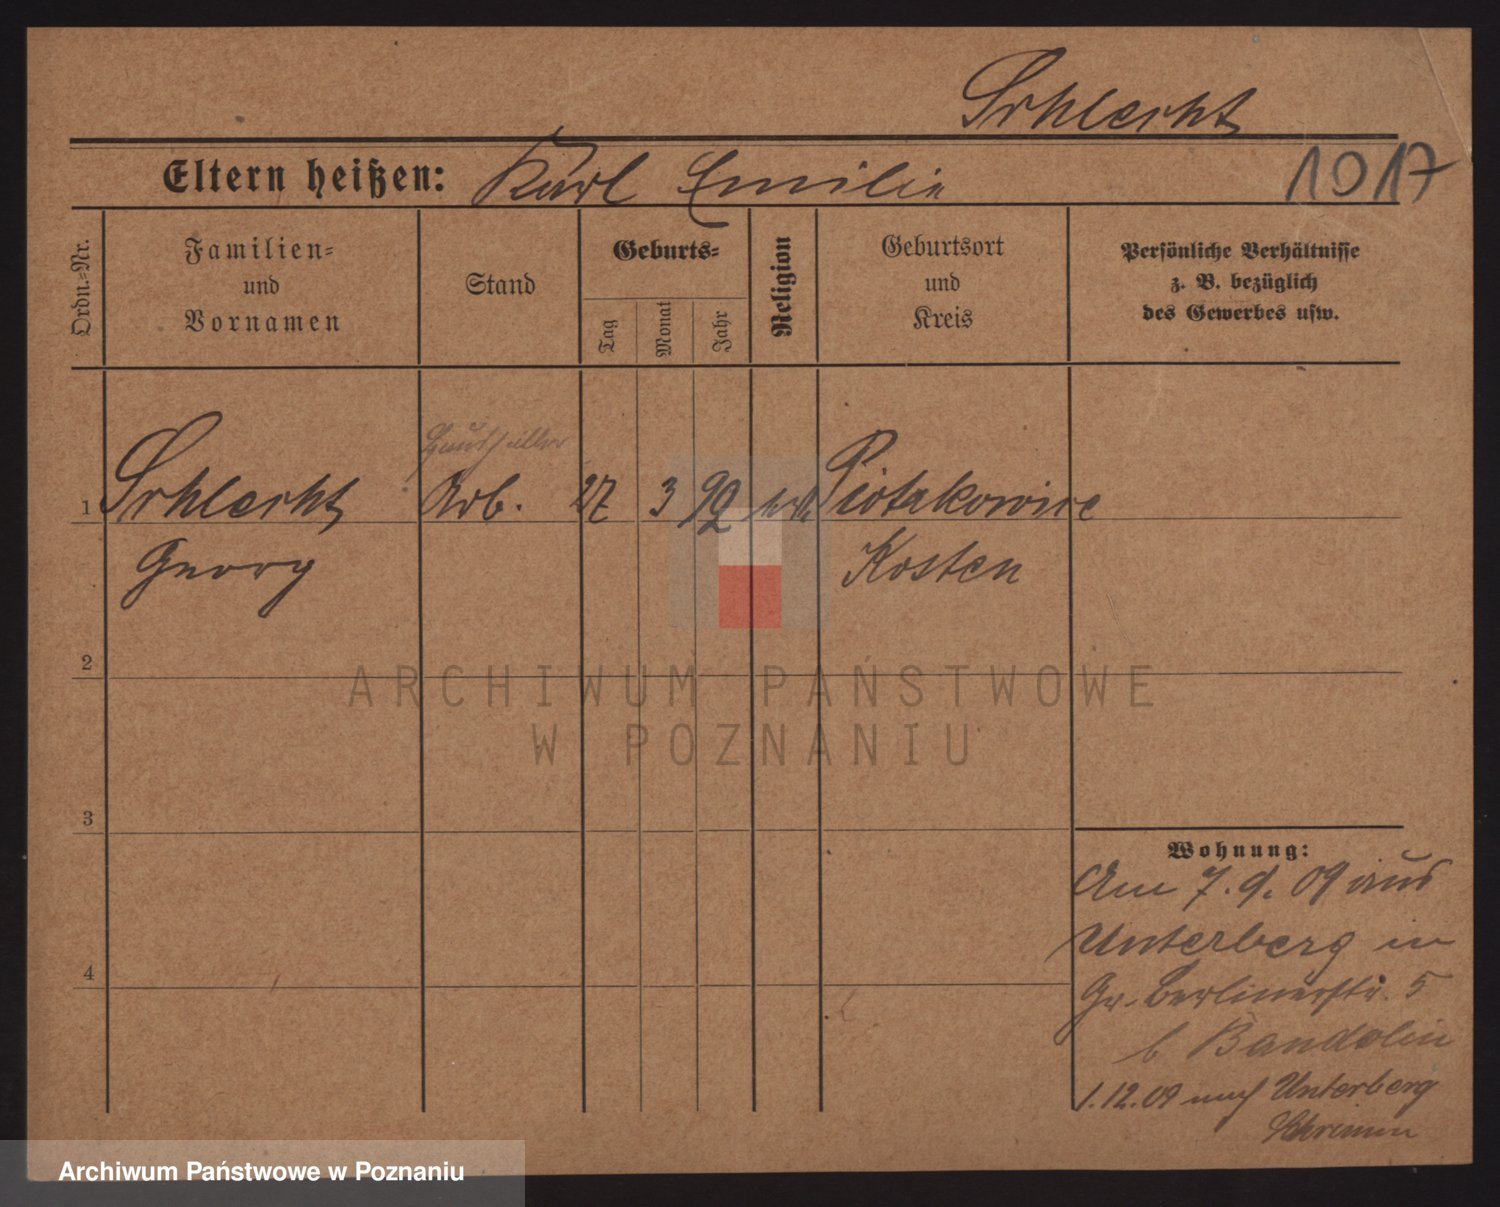 Schlecht
Eltern heißen: Karl Emilie
1017
Ordn.-Nr.
Familien-
und
Vornamen
Stand
Geburts-
Tag
Monat
Jahr
Religion
Geburtsort
und
Kreis
Persönliche Verhältnisse
z. B. bezüglich
des Gewerbes usw.
1 Schlecht Arb. 27 3 92 Piotrkowice
Georg Kosten
2
3
4
ARCHIWUM PAŃSTWOWE
W POZNANIU
Wohnung:
Am 7. 9. 09 aus
Unterberg in
Gr. Berlinerstr. 5
b Bandolin
1.12.09 nach Unterberg
Schrimm
Archiwum Państwowe w Poznaniu